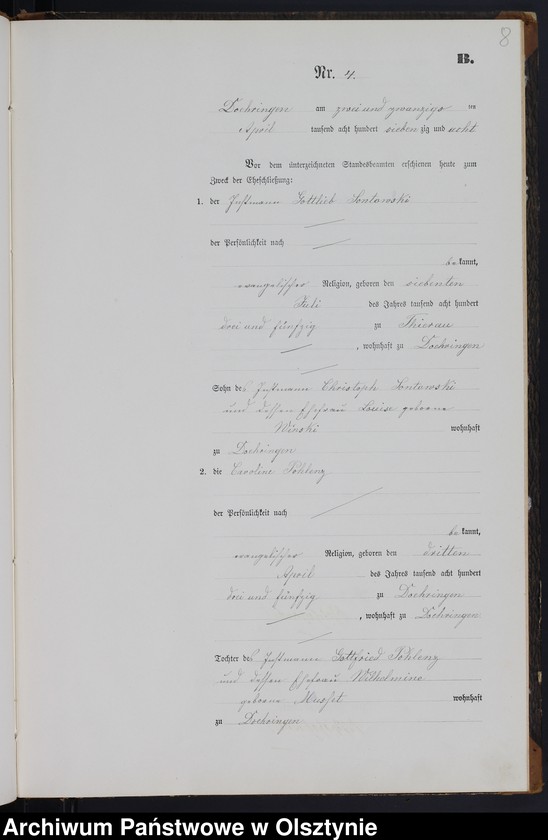 8
B.
Nr. 4.
Doehringen am zwei und zwanzigs ten
April tausend acht hundert sieben zig und acht
Vor dem unterzeichneten Standesbeamten erschienen heute zum
Zweck der Eheschließung:
1. der Instmann Gottlieb Sontowski
der Persönlichkeit nach
be kannt,
evangelischer Religion, geboren den siebenten
Juli des Jahres tausend acht hundert
drei und fünfzig zu Thierau
, wohnhaft zu Doehringen
Sohn des Instmann Christoph Sontowski
und dessen Ehefrau Louise geborne
Winski wohnhaft
zu Doehringen
2. die Caroline Pohlenz
der Persönlichkeit nach
be kannt,
evangelischer Religion, geboren den dritten
April des Jahres tausend acht hundert
drei und fünfzig zu Doehringen
, wohnhaft zu Doehringen
Tochter des Instmann Gottfried Pohlenz
und dessen Ehefrau Wilhelmine
geborne wohnhaft
zu Doehringen
Archiwum Państwowe w Olsztynie